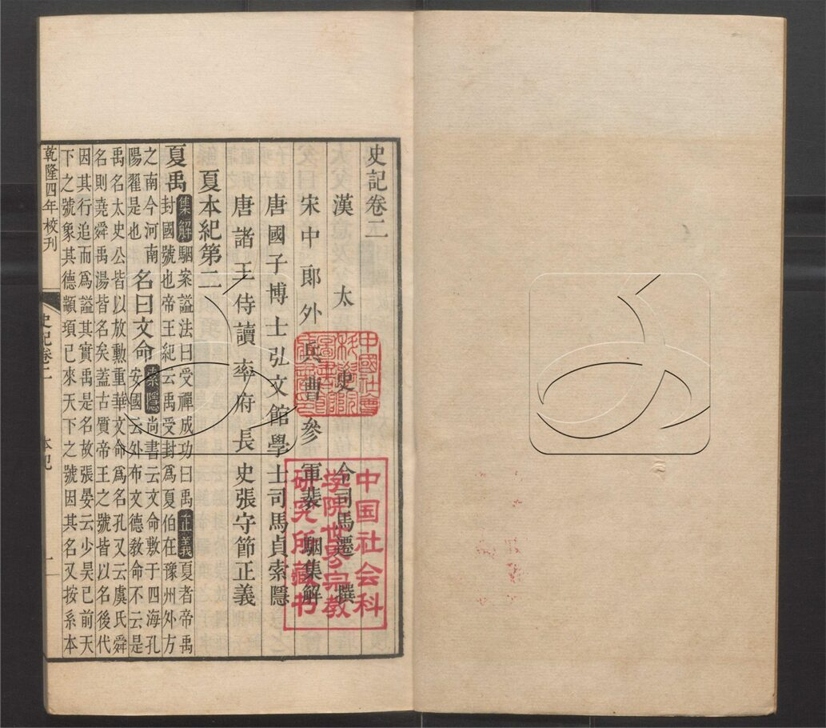 史記卷二
漢太史令司馬遷撰
宋中郎外兵曹參軍裴駰集解
唐國子博士弘文館學士司馬貞索隱
唐諸王侍讀率府長史張守節正義
夏本紀第二
夏禹集解駰案諡法曰受禪成功曰禹正義夏者帝禹
封國號也帝王紀云禹受封爲夏伯在豫州外方
之南今河南
陽翟是也
名曰文命索隱尚書云文命敷于四海孔
安國云外布文德教命不云是
禹名太史公皆以放勳重華文命爲名孔又云虞氏舜
名則堯舜禹湯皆名矣蓋古質帝王之號皆以名後代
因其行追而爲諡其實禹是名故張晏云少昊已前天
下之號象其德顓頊已來天下之號因其名又按系本
乾隆四年校刊
史記卷二
本紀
一
中国社会科
学院世界宗教
研究所藏书